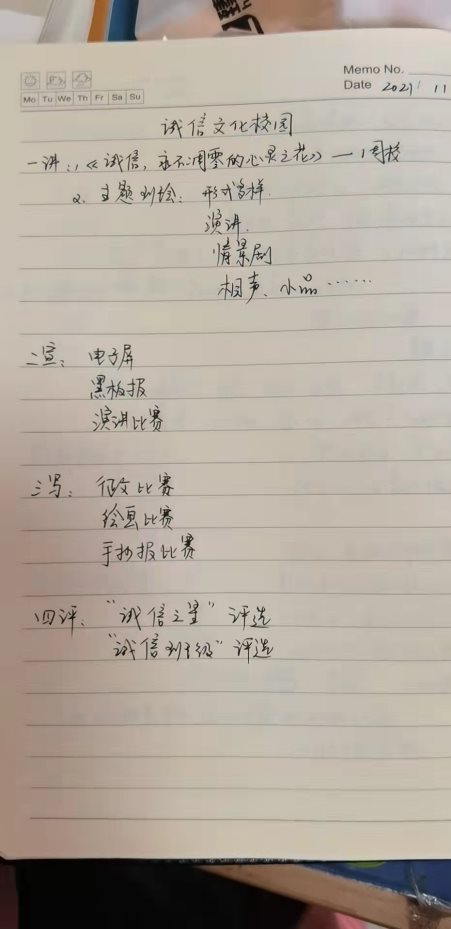 Memo No.
Mo Tu We Th Fr Sa Su
Date 2021 11
诚信文化校园
一讲：1，《诚信，永不凋零的心灵之花》—1周校
2. 主题班会：形式多样.
演讲.
情景剧
相声、小品……
二宣：电子屏
黑板报
演讲比赛
三写：征文比赛
绘画比赛
手抄报比赛
四评："诚信之星"评选
"诚信班级"评选